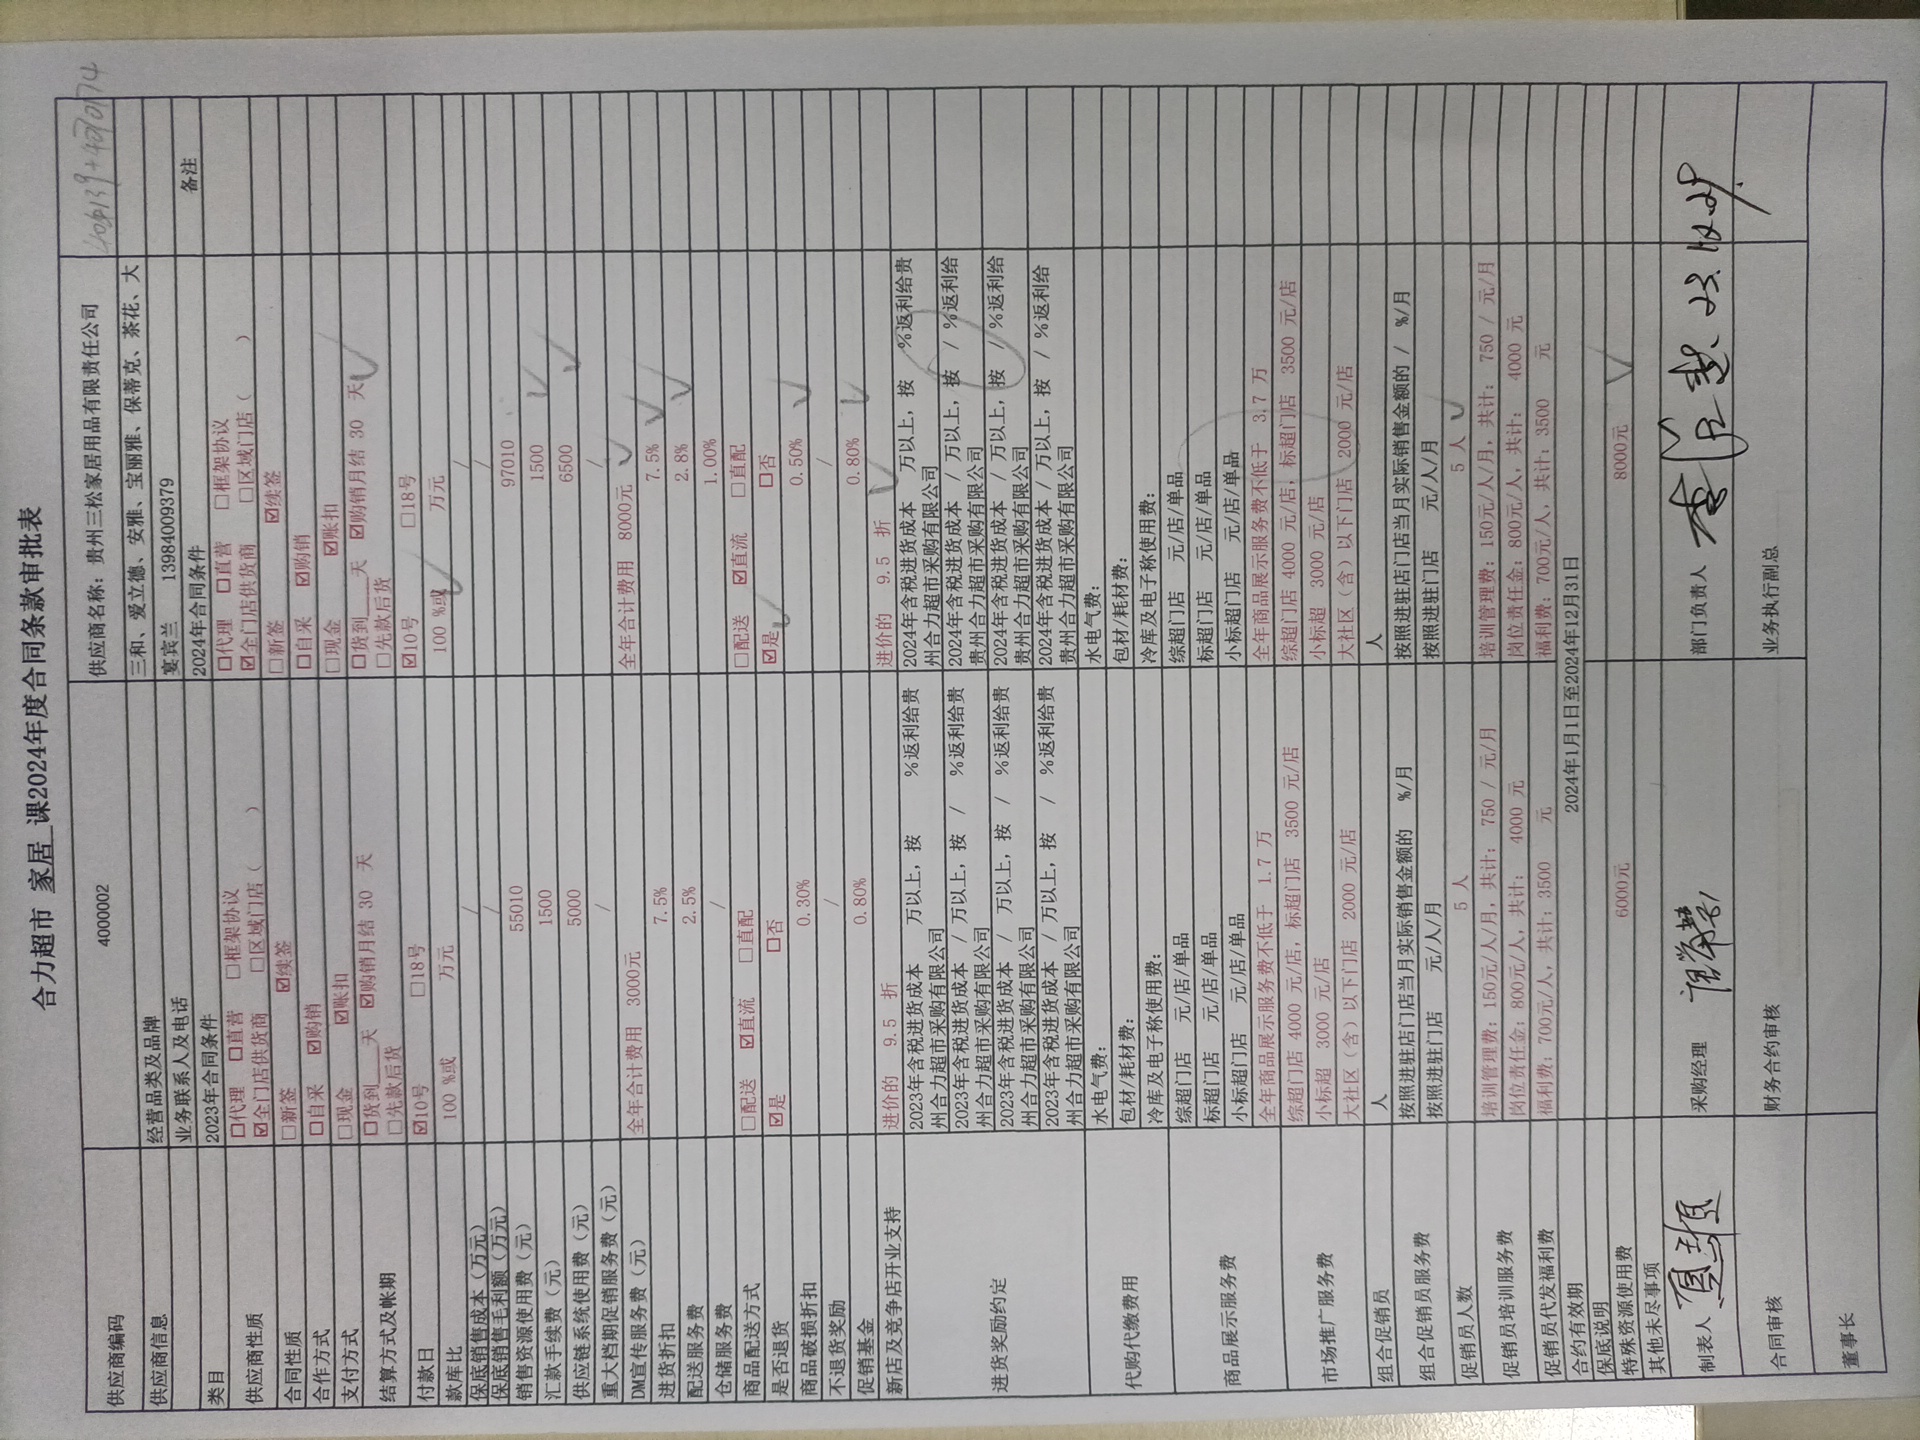 合力超市 家居 课2024年度合同条款审批表
供应商编码 4000002 供应商名称：贵州三松家居用品有限责任公司
供应商信息 经营品类及品牌 三和、爱立德、安雅、宝丽雅、保蒂克、茶花、大
业务联系人及电话 宴宾兰 13984009379
类目 2023年合同条件 2024年合同条件 备注
供应商性质 ☐代理 ☐直营 ☐框架协议 ☐代理 ☐直营 ☐框架协议
☑全门店供货商 ☐区域门店（ ） ☑全门店供货商 ☐区域门店（ ）
合同性质 ☐新签 ☑续签 ☐新签 ☑续签
合作方式 ☐自采 ☑购销 ☐自采 ☑购销
支付方式 ☐现金 ☑账扣 ☐现金 ☑账扣
结算方式及帐期 ☐货到__天 ☑购销月结 30 天 ☐货到__天 ☑购销月结 30 天
☐先款后货 ☐先款后货
付款日 ☑10号 ☐18号 ☑10号 ☐18号
款库比 100 %或 万元 100 %或 万元
保底销售成本（万元） / /
保底销售毛利额（万元） / /
销售资源使用费（元） 55010 97010
汇款手续费（元） 1500 1500
供应链系统使用费（元） 5000 6500
重大档期促销服务费（元） / /
DM宣传服务费（元） 全年合计费用 3000元 全年合计费用 8000元
进货折扣 7.5% 7.5%
配送服务费 2.5% 2.8%
仓储服务费 / 1.00%
商品配送方式 ☐配送 ☑直流 ☐直配 ☐配送 ☑直流 ☐直配
是否退货 ☑是 ☐否 ☑是 ☐否
商品破损折扣 0.30% 0.50%
不退货奖励 / /
促销基金 0.80% 0.80%
新店及竞争店开业支持 进价的 9.5 折 进价的 9.5 折
进货奖励约定 2023年含税进货成本 万以上，按 %返利给贵 2024年含税进货成本 万以上，按 %返利给贵
州合力超市采购有限公司 州合力超市采购有限公司
2023年含税进货成本 / 万以上，按 / %返利给贵 2024年含税进货成本 / 万以上，按 / %返利给
州合力超市采购有限公司 贵州合力超市采购有限公司
2023年含税进货成本 / 万以上，按 / %返利给贵 2024年含税进货成本 / 万以上，按 / %返利给
州合力超市采购有限公司 贵州合力超市采购有限公司
2023年含税进货成本 / 万以上，按 / %返利给贵 2024年含税进货成本 / 万以上，按 / %返利给
州合力超市采购有限公司 贵州合力超市采购有限公司
代购代缴费用 水电气费： 水电气费：
包材/耗材费： 包材/耗材费：
冷库及电子称使用费： 冷库及电子称使用费：
商品展示服务费 综超门店 元/店/单品 综超门店 元/店/单品
标超门店 元/店/单品 标超门店 元/店/单品
小标超门店 元/店/单品 小标超门店 元/店/单品
全年商品展示服务费不低于 1.7 万 全年商品展示服务费不低于 3.7 万
市场推广服务费 综超门店 4000 元/店，标超门店 3500 元/店 综超门店 4000 元/店，标超门店 3500 元/店
小标超 3000 元/店 小标超 3000 元/店
大社区（含）以下门店 2000 元/店 大社区（含）以下门店 2000 元/店
组合促销员 人 人
组合促销员服务费 按照进驻店门店当月实际销售金额的 %/月 按照进驻店门店当月实际销售金额的 / %/月
按照进驻门店 元/人/月 按照进驻门店 元/人/月
促销员人数 5 人 5 人
促销员培训服务费 培训管理费：150元/人/月，共计： 750 / 元/月 培训管理费：150元/人/月，共计： 750 / 元/月
岗位责任金：800元/人，共计： 4000 元 岗位责任金：800元/人，共计： 4000 元
促销员代发福利费 福利费：700元/人，共计：3500 元 福利费：700元/人，共计：3500 元
合约有效期 2024年1月1日至2024年12月31日
保底说明
特殊资源使用费 6000元 8000元
其他未尽事项
制表人 采购经理 部门负责人
合同审核 财务合约审核 业务执行副总
董事长